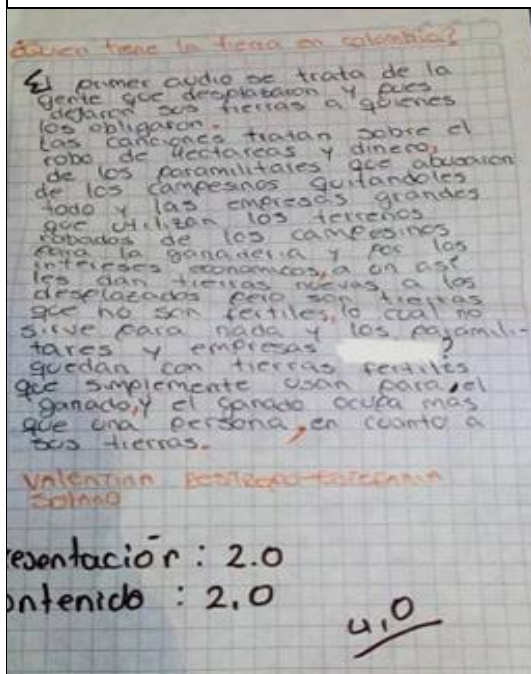 ¿Quien tiene la tierra en colombia?
El primer audio se trata de la
gente que desplazaron y pues
dejaron sus tierras a quienes
los obligaron.
Las canciones tratan sobre el
robo de Hectareas y dinero,
de los paramilitares que abusaron
de los campesinos quitandoles
todo y las empresas grandes
que utilizan los terrenos
robados de los campesinos
para la ganaderia y por los
intereses economicos, a un asi
les dan tierras nuevas a los
desplazados pero son tierras
que no son fertiles, lo cual no
sirve para nada y los paramili-
tares y empresas ?
quedan con tierras fertiles
que simplemente usan para el
ganado, y el ganado ocupa mas
que una persona, en cuanto a
sus tierras.
Solano
esentación: 2.0
ontenido : 2.0
4,0